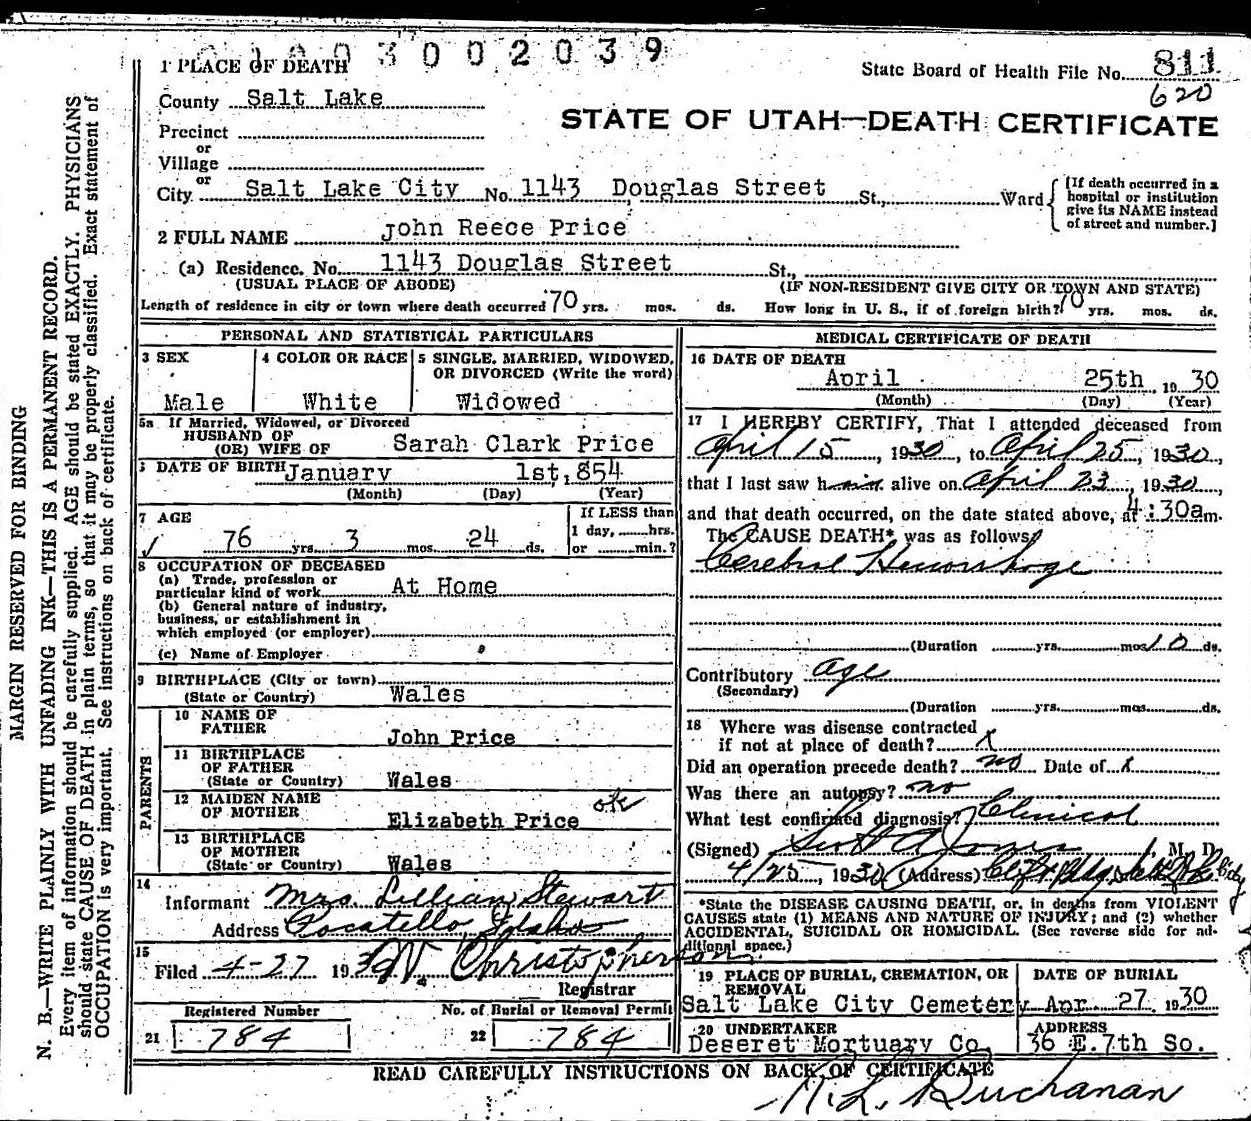 3 0 0 2 0 3 9
State Board of Health File No. 811
620
1 PLACE OF DEATH
County Salt Lake
STATE OF UTAH—DEATH CERTIFICATE
Precinct
or
Village
or
City Salt Lake City No. 1143 Douglas Street St., Ward
[If death occurred in a hospital or institution give its NAME instead of street and number.]
2 FULL NAME John Reece Price
(a) Residence. No. 1143 Douglas Street St.,
(USUAL PLACE OF ABODE) (IF NON-RESIDENT GIVE CITY OR TOWN AND STATE)
Length of residence in city or town where death occurred 70 yrs. mos. ds. How long in U. S., if of foreign birth? 70 yrs. mos. ds.
PERSONAL AND STATISTICAL PARTICULARS
3 SEX
Male
4 COLOR OR RACE
White
5 SINGLE, MARRIED, WIDOWED, OR DIVORCED (Write the word)
Widowed
5a If Married, Widowed, or Divorced
HUSBAND OF
(OR) WIFE OF Sarah Clark Price
DATE OF BIRTH January 1st, 854
(Month) (Day) (Year)
7 AGE
76 yrs. 3 mos. 24 ds.
If LESS than
1 day, hrs.
or min.?
8 OCCUPATION OF DECEASED
(a) Trade, profession or
particular kind of work At Home
(b) General nature of industry,
business, or establishment in
which employed (or employer)
(c) Name of Employer
9 BIRTHPLACE (City or town)
(State or Country) Wales
PARENTS
10 NAME OF
FATHER John Price
11 BIRTHPLACE
OF FATHER
(State or Country) Wales
12 MAIDEN NAME
OF MOTHER Elizabeth Price ok
13 BIRTHPLACE
OF MOTHER
(State or Country) Wales
14
Informant Mrs. Lillian Stewart
Address Pocatello, Idaho
15
Filed 4-27 1930 W. Christopherson.
Registrar
Registered Number No. of Burial or Removal Permit
21 784 22 784
MEDICAL CERTIFICATE OF DEATH
16 DATE OF DEATH
April 25th 1930
(Month) (Day) (Year)
17 I HEREBY CERTIFY, That I attended deceased from
April 15, 1930, to April 25, 1930,
that I last saw him alive on April 23, 1930,
and that death occurred, on the date stated above, at 4:30am.
The CAUSE DEATH* was as follows:
Cerebral Hemorrhage
(Duration yrs. mos. 10 ds.
Contributory Age
(Secondary)
(Duration yrs. mos. ds.
18 Where was disease contracted
if not at place of death? x
Did an operation precede death? no Date of x
Was there an autopsy? no
What test confirmed diagnosis? Clinical
(Signed) Jones M. D.
4/25, 1930 (Address)
*State the DISEASE CAUSING DEATH, or, in deaths from VIOLENT
CAUSES state (1) MEANS AND NATURE OF INJURY; and (2) whether
ACCIDENTAL, SUICIDAL OR HOMICIDAL. (See reverse side for ad-
ditional space.)
19 PLACE OF BURIAL, CREMATION, OR REMOVAL
Salt Lake City Cemetery
DATE OF BURIAL
Apr. 27 1930
20 UNDERTAKER
Deseret Mortuary Co.
ADDRESS
36 E. 7th So.
READ CAREFULLY INSTRUCTIONS ON BACK OF CERTIFICATE
Buchanan
MARGIN RESERVED FOR BINDING
N. B.—WRITE PLAINLY WITH UNFADING INK—THIS IS A PERMANENT RECORD.
Every item of information should be carefully supplied. AGE should be stated EXACTLY. PHYSICIANS
should state CAUSE OF DEATH in plain terms, so that it may be properly classified. Exact statement of
OCCUPATION is very important. See instructions on back of certificate.